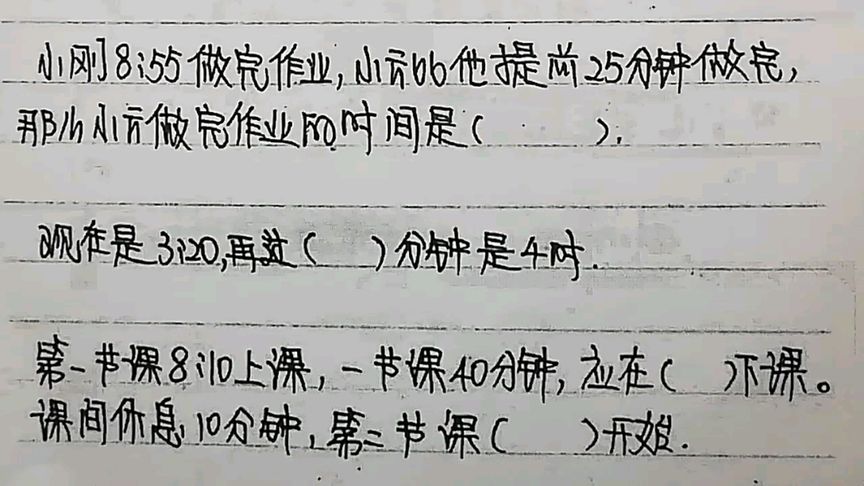 小刚8:55做完作业,小云比他提前25分钟做完,
那么小云做完作业的时间是(   ).
现在是3:20,再过(   )分钟是4时.
第一节课8:10上课,一节课40分钟,应在(   )下课。
课间休息10分钟,第二节课(   )开始.